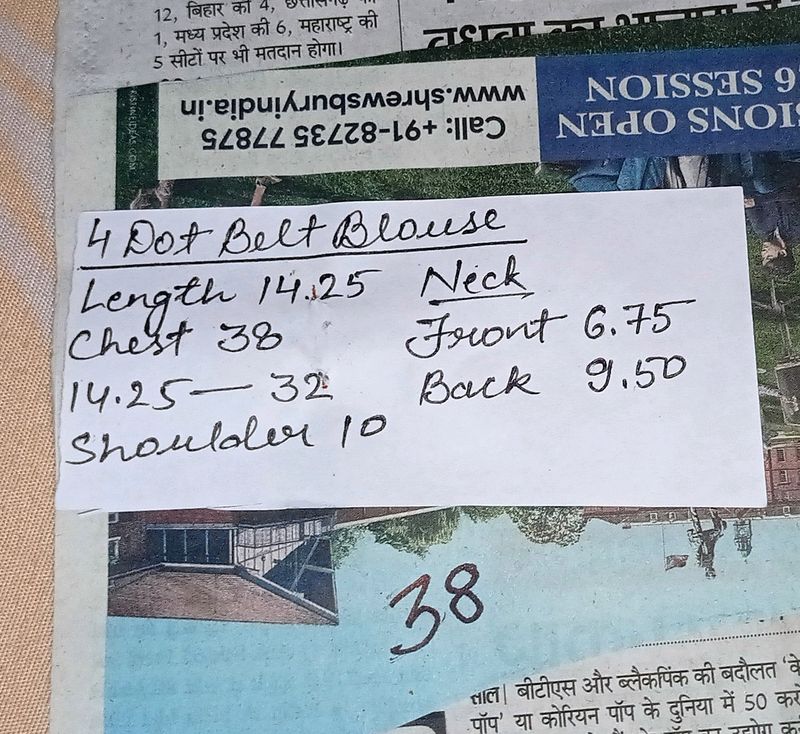 12, बिहार की 4,
1, मध्य प्रदेश की 6, महाराष्ट्र की
5 सीटों पर भी मतदान होगा।
6 SESSION
IONS OPEN
www.shrewsburyindia.in
Call: +91-82735 77875
4 Dot Belt Blouse
Length 14.25 Neck
Chest 38 Front 6.75
14.25 — 32 Back 9.50
Shoulder 10
38
ताल। बीटीएस और ब्लैकपिंक की बदौलत 'के
पॉप' या कोरियन पॉप के दुनिया में 50 करो